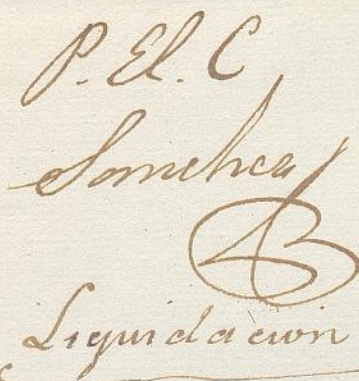 P. El. C
Sanchez
Liquidacion